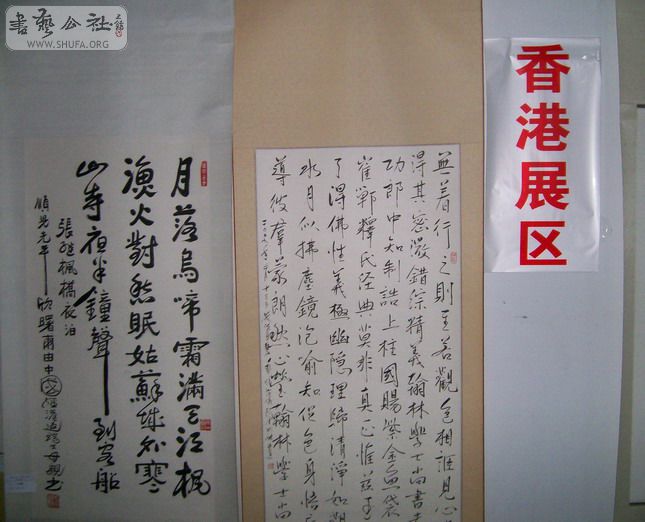 書藝公社
WWW.SHUFA.ORG
香港展区
月落烏啼霜滿天江楓
漁火對愁眠姑蘇城外寒
山寺夜半鐘聲到客船
張繼楓橋夜泊
無著行之則至若觀色相誰見心
得其密微錯綜精義翰林學士尚書
功郎中知制誥上柱國賜紫金魚袋
崔鄲釋氏經典莫非真心惟茲
了得佛性義極幽隱理歸清淨如觀
水月似拂塵鏡泡喻知但色身悟
導彼群蒙朗然心瑩翰林學士尚